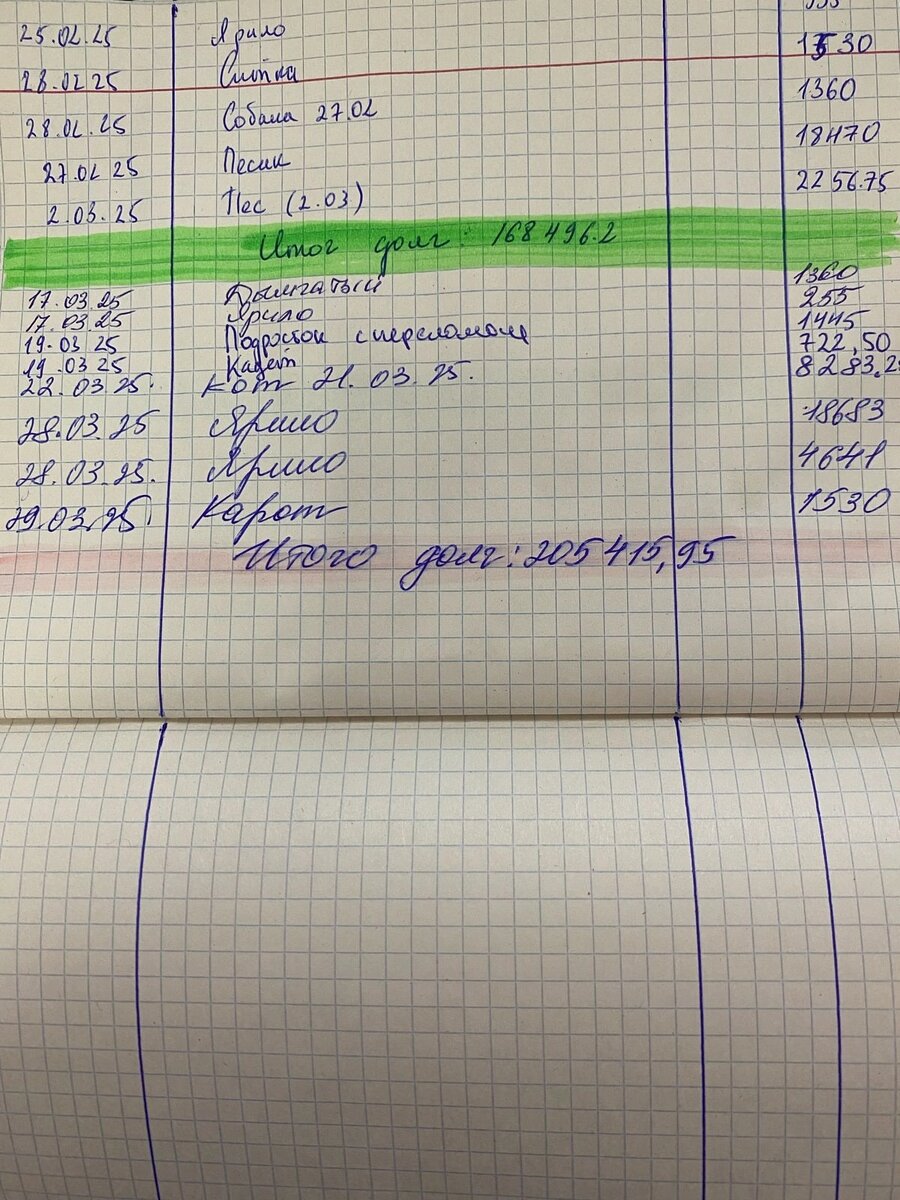 25.02.25 Ярило
28.02.25 1530
28.02.25 Собака 27.02 1360
27.02.25 Песик 18470
2.03.25 Пес (2.03) 2256.75
Итог долг: 168 496.2
17.03.25 Дымчатый 1360
17.03.25 Ярило 255
19.03.25 Подросток с переломом 1445
19.03.25 Кадет 722,50
22.03.25. Кот 21.03.25. 8283.2
28.03.25 Ярило 18683
28.03.25. Ярило 4641
29.03.25. Карат 1530
Итого долг: 205 415,95